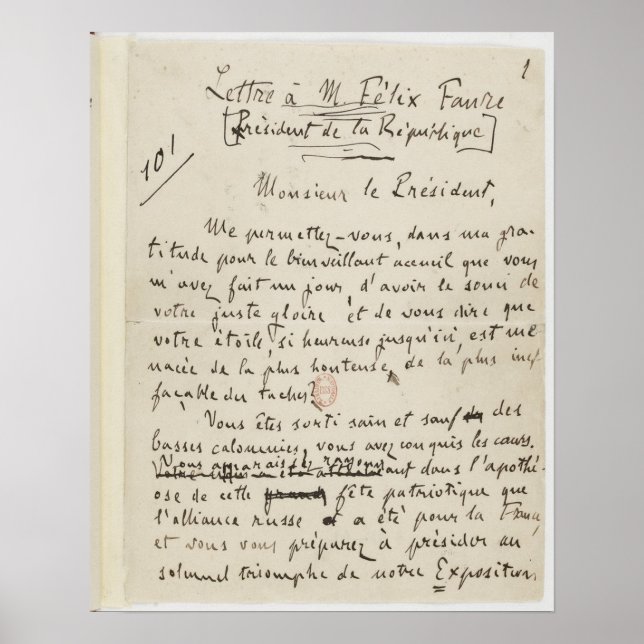 1
Lettre à M. Félix Faure
[Président de la République]
101
Monsieur le Président,
Me permettez-vous, dans ma gra-
titude pour le bienveillant accueil que vous
m'avez fait un jour d'avoir le souci de
votre juste gloire et de vous dire que
votre étoile, si heureuse jusqu'ici, est me
nacée de la plus honteuse, de la plus inef
façable des taches?
Vous êtes sorti sain et sauf des
basses calomnies, vous avez conquis les cœurs.
Vous apparaissez rayonn
ant dans l'apothé-
ose de cette fête patriotique que
l'alliance russe a été pour la France,
et vous vous préparez à présider au
solennel triomphe de notre Exposition